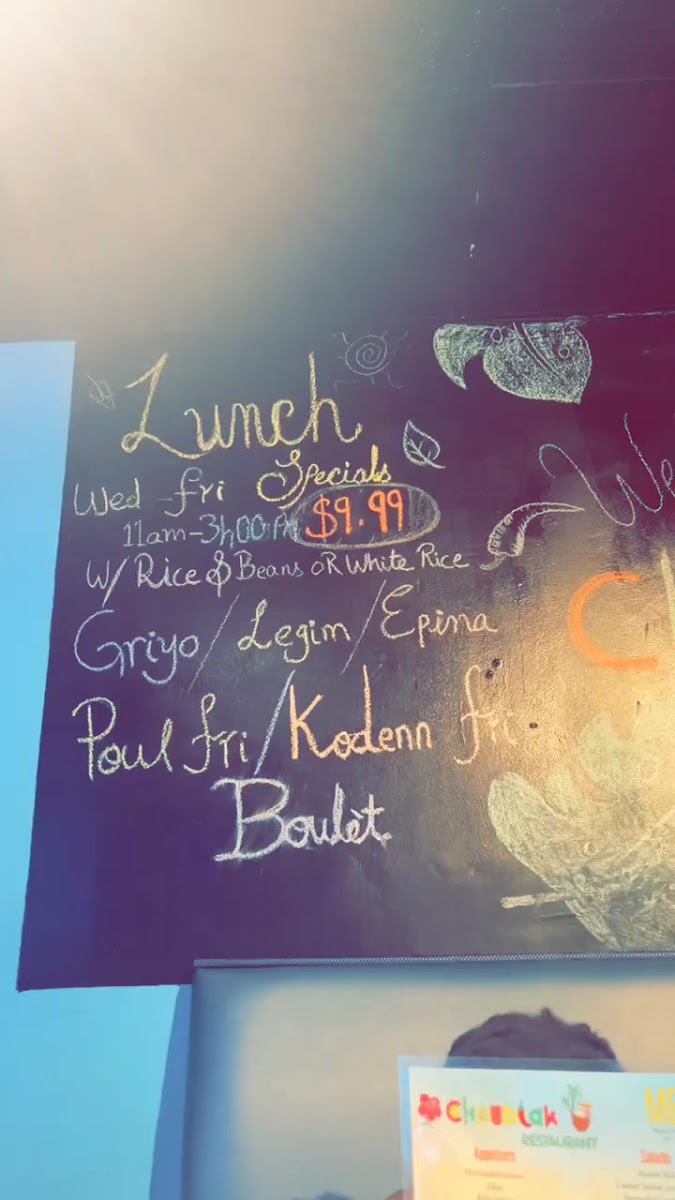 Lunch
Specials
Wed - fri
11am-3h00 PM
$9.99
W/ Rice & Beans oR White Rice
Griyo / Legim / Epina
Poul fri / Kodenn fri
Boulèt
We
C
Choublak
RESTAURANT
Appetizers
Salads